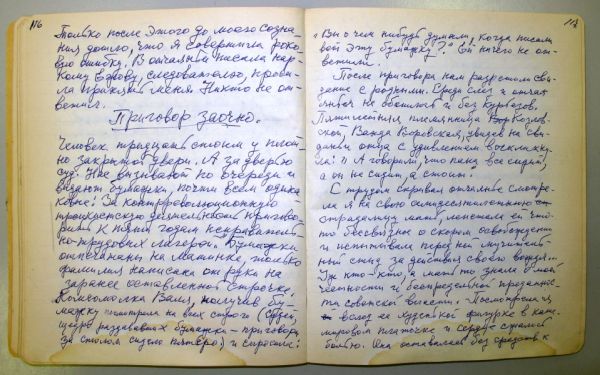 116
Только после этого до моего созна-
ния дошло, что я совершила роко-
вую ошибку. В отчаяньи писала нар-
кому Ежову, следователю, проси-
ла принять меня. Никто не от-
вечал.
Приговор заочно.
Человек тридцать стоим у плот-
но закрытой двери. А за дверью
суд. Нас вызывают по очереди и
выдают бумажки, почти всем одина-
ковые: За контрреволюционную
троцкистскую деятельность пригово-
рить к пяти годам исправитель-
но-трудовых лагерей. Бумажки
отпечатаны на машинке, только
фамилия написана от руки на
заранее оставленной строчке.
Комсомолка Валя, получив бу-
мажку посмотрела на всех строго (судей,
щедро раздававших бумажки - приговоры
за столом сидело пятеро) и спросила:
117
"Вы о чем нибудь думали, когда писали
вой эту бумажку?" Ей ничего не от-
ветили.
После приговора нам разрешили сви-
дание с родными. Среди слез и отчая
нья не обошлось и без курьезов.
Пятилетняя племянница Козлов-
ской, Ванда Воровская, увидев на сви-
дании отца с удивлением воскликну-
ла: "А говорили, что папа все сидит,
а он не сидит, а стоит.
С трудом скрывая отчаянье смотре-
ла я на свою семидесятилетнюю
страдалицу мать, лепетала ей что-
то бессвязное о скором освобождении
и испытывала перед ней мучитель-
ный стыд за действия своего вождя...
Уж кто-кто, а мать то знала о моей
честности и беспредельной преданнос
ти советской власти. Посмотрела я
вслед ее худенькой фигурке в каше-
мировом платочке и сердце сжалось
болью. Она оставалась без средств к